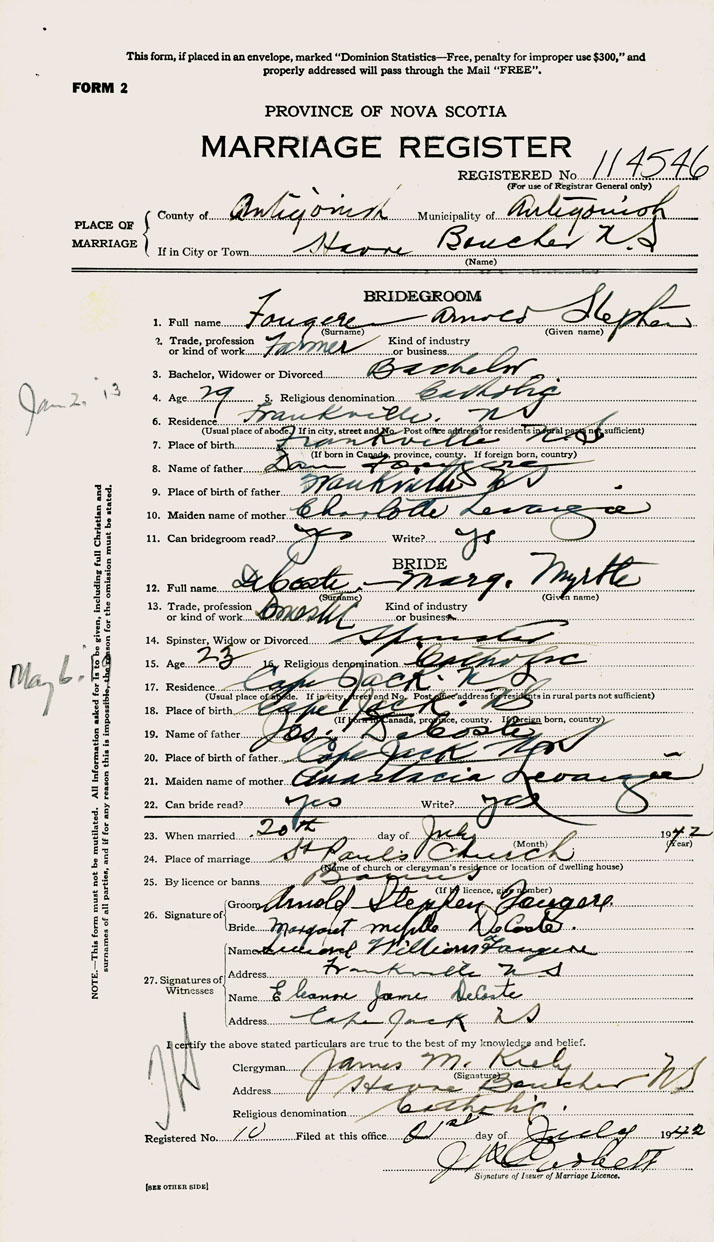 This form, if placed in an envelope, marked "Dominion Statistics—Free, penalty for improper use $300," and
properly addressed will pass through the Mail "FREE".
FORM 2
PROVINCE OF NOVA SCOTIA
MARRIAGE REGISTER
REGISTERED No. 114546
(For use of Registrar General only)
PLACE OF MARRIAGE
County of Antigonish Municipality of Antigonish
If in City or Town Havre Boucher N.S
(Name)
BRIDEGROOM
1. Full name Fougere Arnold Stephen
(Surname) (Given name)
2. Trade, profession or kind of work Farmer Kind of industry or business
3. Bachelor, Widower or Divorced Bachelor
4. Age 29 5. Religious denomination Catholic
6. Residence Frankville. NS
(Usual place of abode. If in city, street and No. Post office address for residents in rural parts not sufficient)
7. Place of birth Frankville N.S
(If born in Canada, province, county. If foreign born, country)
8. Name of father Dan Fougere
9. Place of birth of father Frankville NS
10. Maiden name of mother Charlotte Levangie
11. Can bridegroom read? yes Write? ys
BRIDE
12. Full name DeCoste - Marg. Myrtle
(Surname) (Given name)
13. Trade, profession or kind of work Domestic Kind of industry or business
14. Spinster, Widow or Divorced Spinster
15. Age 23 16. Religious denomination Catholic
17. Residence Cape Jack. NS
(Usual place of abode. If in city, street and No. Post office address for residents in rural parts not sufficient)
18. Place of birth Cape Jack. NS
(If born in Canada, province, county. If foreign born, country)
19. Name of father Jos. DeCoste
20. Place of birth of father Cape Jack NS
21. Maiden name of mother Anastacia Levangie
22. Can bride read? yes Write? yes
23. When married 20th day of July 1942
(Month) (Year)
24. Place of marriage St Paul's Church
(Name of church or clergyman's residence or location of dwelling house)
25. By licence or banns Banns
(If by licence, give number)
26. Signature of
Groom Arnold Stephen Fougere
Bride Margaret myrtle DeCoste.
27. Signatures of Witnesses
Name William Fougere
Address Frankville NS
Name Eleanor Jane DeCoste
Address Cape Jack NS
I certify the above stated particulars are true to the best of my knowledge and belief.
Clergyman James M. Kiely
(Signature)
Address Havre Boucher NS
Religious denomination Catholic.
Registered No. 10 Filed at this office 21st day of July 1942
Signature of Issuer of Marriage Licence.
[SEE OTHER SIDE]
Jan 2. '13
May 6.
NOTE.—This form must not be mutilated. All information asked for is to be given, including full Christian and
surnames of all parties, and if for any reason this is impossible, the reason for the omission must be stated.